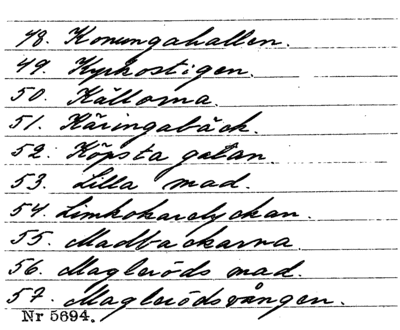 48. Konungahallen.
49. Kyrkostigen.
50. Källorna.
51. Käringabäck.
52. Köpsta gatan.
53. Lilla mad.
54. Limkokarelyckan.
55. Madbackarna.
56. Magleröds mad.
57. Maglerödsvången.
Nr 5694.